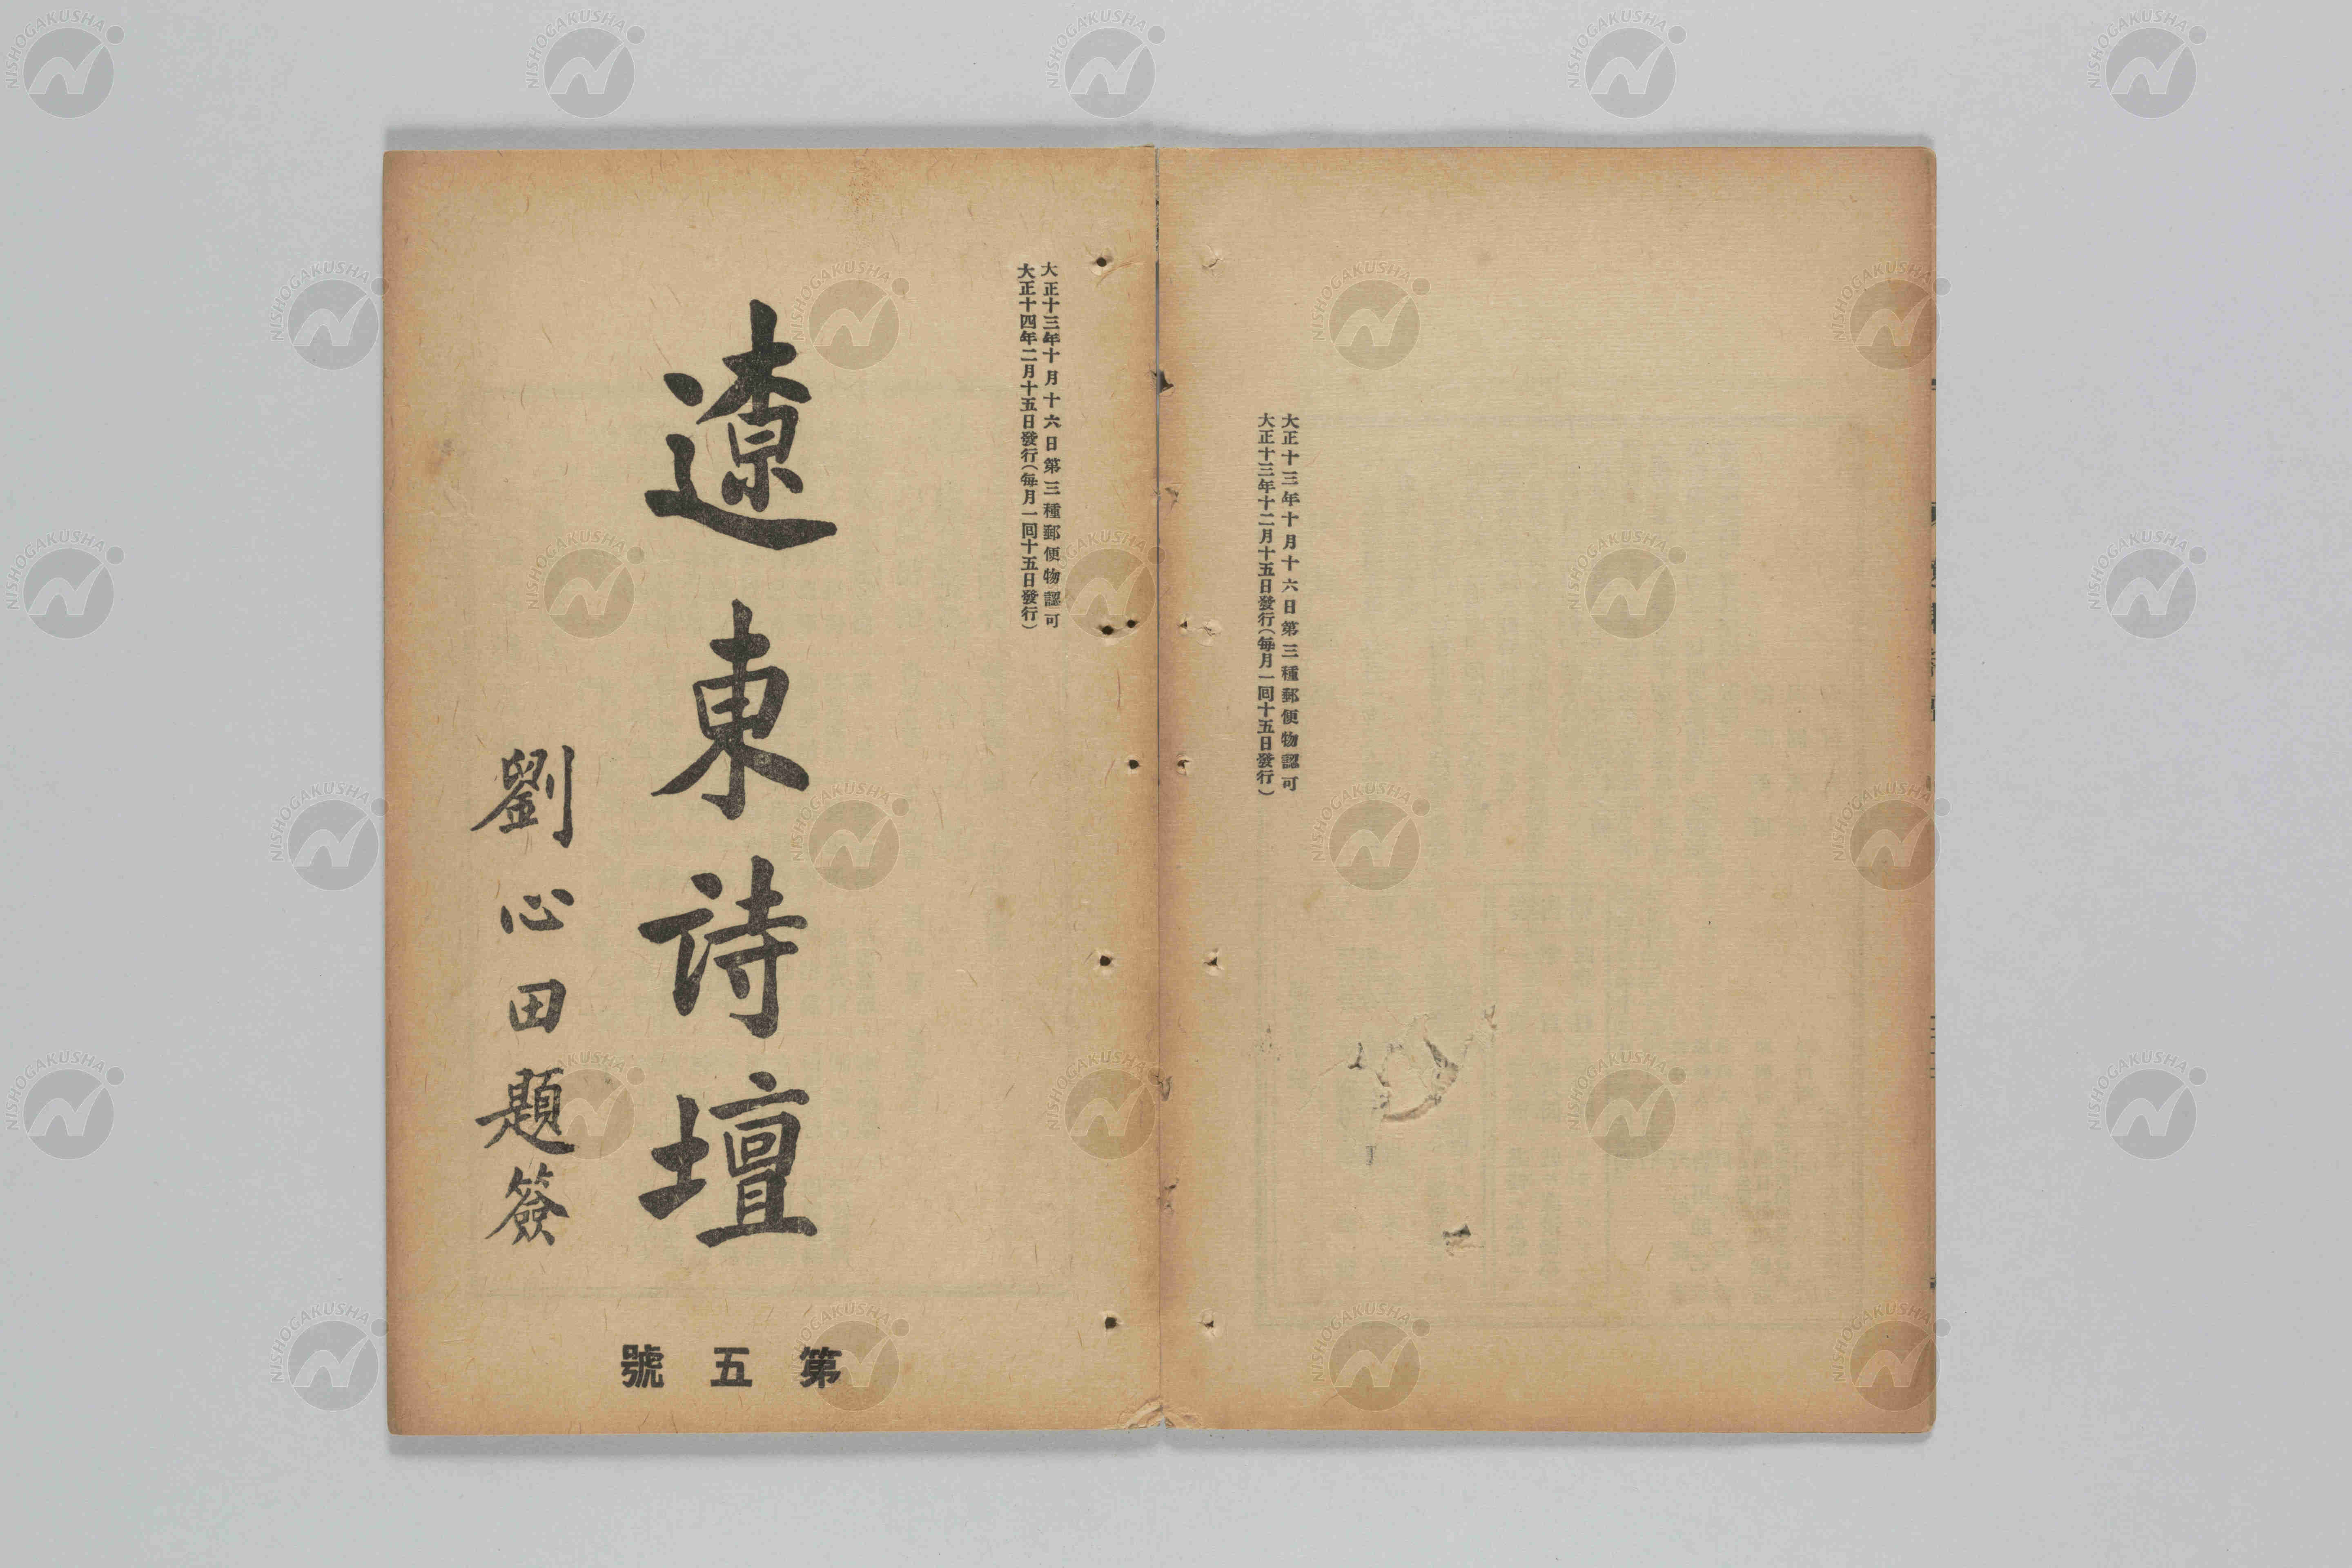 大正十三年十月十六日第三種郵便物認可
大正十三年十二月十五日發行(每月一囘十五日發行)
大正十三年十月十六日第三種郵便物認可
大正十四年二月十五日發行(每月一囘十五日發行)
遼東詩壇
劉心田題簽
第五號
NISHOGAKUSHA